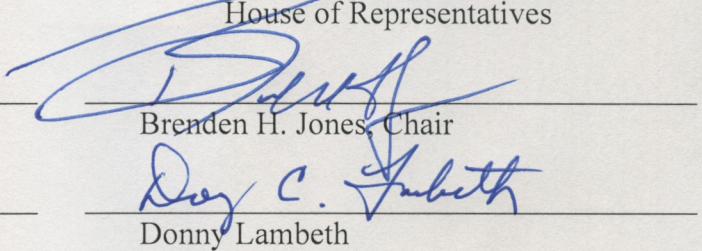 House of Representatives
Brenden H. Jones, Chair
Donny C. Lambeth
Donny Lambeth